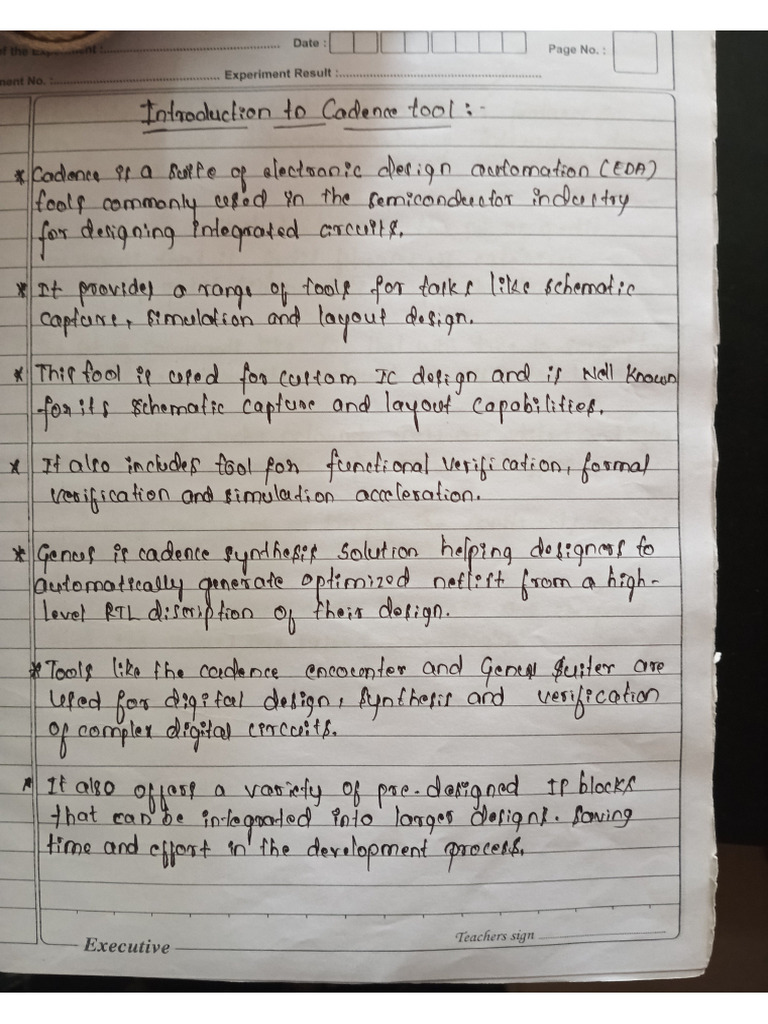 of the Experiment :
Date :
Page No. :
ment No. :
Experiment Result :
Introduction to Cadence tool :-
* Cadence is a suite of electronic design automation (EDA)
tools commonly used in the semiconductor industry
for designing integrated circuits.
* It provides a range of tools for tasks like schematic
capture, simulation and layout design.
* This tool is used for custom IC design and is Well known
for its schematic capture and layout capabilities.
* It also includes tool for functional verification, formal
verification and simulation acceleration.
* Genus is cadence synthesis solution helping designers to
automatically generate optimized netlist from a high-
level RTL discription of their design.
* Tools like the cadence encounter and Genus suiter are
used for digital design, synthesis and verification
of complex digital circuits.
* It also offers a variety of pre-designed IP blocks
that can be integrated into larger designs. saving
time and effort in the development process.
Executive
Teachers sign